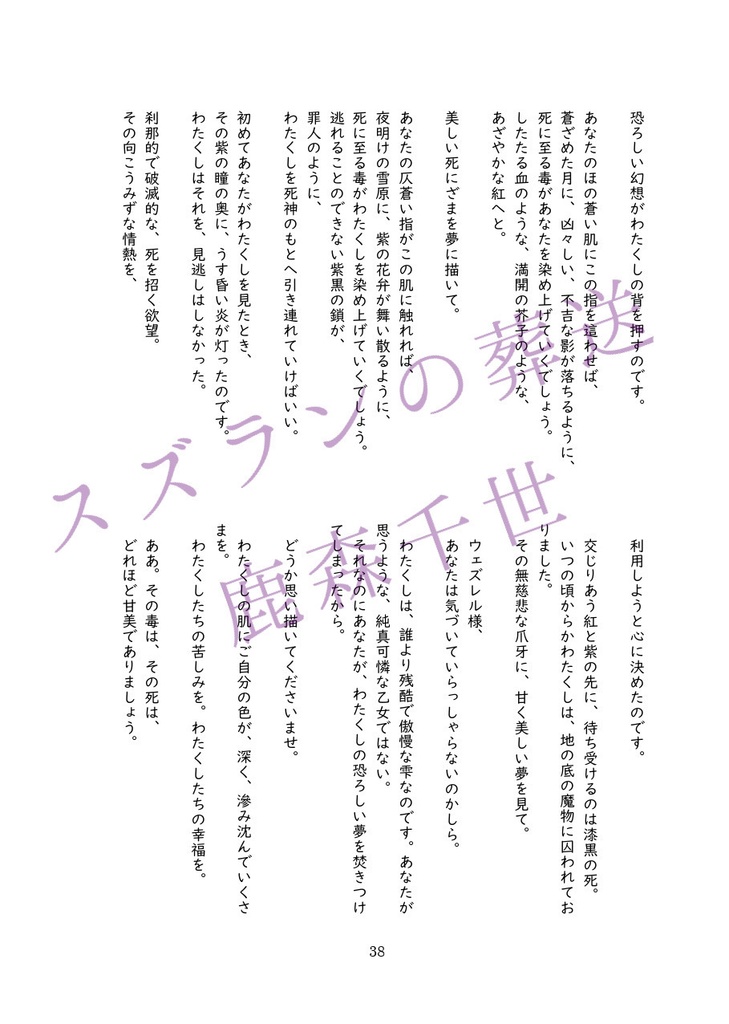 恐ろしい幻想がわたくしの背を押すのです。
あなたのほの蒼い肌にこの指を這わせば、
蒼ざめた月に、凶々しい、不吉な影が落ちるように、
死に至る毒があなたを染め上げていくでしょう。
したたる血のような、満開の芥子のような、
あざやかな紅へと。
美しい死にざまを夢に描いて。
あなたの仄蒼い指がこの肌に触れれば、
夜明けの雪原に、紫の花弁が舞い散るように、
死に至る毒がわたくしを染め上げていくでしょう。
逃れることのできない紫黒の鎖が、
罪人のように、
わたくしを死神のもとへ引き連れていけばいい。
初めてあなたがわたくしを見たとき、
その紫の瞳の奥に、うす昏い炎が灯ったのです。
わたくしはそれを、見逃しはしなかった。
刹那的で破滅的な、死を招く欲望。
その向こうみずな情熱を、
利用しようと心に決めたのです。
交じりあう紅と紫の先に、待ち受けるのは漆黒の死。
いつの頃からかわたくしは、地の底の魔物に囚われてお
りました。
その無慈悲な爪牙に、甘く美しい夢を見て。
ウェズレル様、
あなたは気づいていらっしゃらないのかしら。
わたくしは、誰より残酷で傲慢な雫なのです。あなたが
思うような、純真可憐な乙女ではない。
それなのにあなたが、わたくしの恐ろしい夢を焚きつけ
てしまったから。
どうか思い描いてくださいませ。
わたくしの肌にご自分の色が、深く、滲み沈んでいくさ
まを。
わたくしたちの苦しみを。わたくしたちの幸福を。
ああ。その毒は、その死は、
どれほど甘美でありましょう。
スズランの葬送
鹿森千世
38